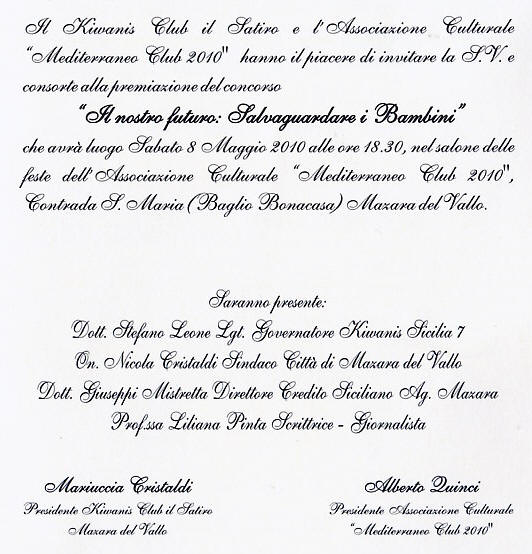 Il Kiwanis Club il Satiro e l'Associazione Culturale
"Mediterraneo Club 2010" hanno il piacere di invitare la S.V. e
consorte alla premiazione del concorso
"Il nostro futuro: Salvaguardare i Bambini"
che avrà luogo Sabato 8 Maggio 2010 alle ore 18.30, nel salone delle
feste dell'Associazione Culturale "Mediterraneo Club 2010",
Contrada S. Maria (Baglio Bonacasa) Mazara del Vallo.
Saranno presente:
Dott. Stefano Leone Lgt. Governatore Kiwanis Sicilia 7
On. Nicola Cristaldi Sindaco Città di Mazara del Vallo
Dott. Giuseppi Mistretta Direttore Credito Siciliano Ag. Mazara
Prof.ssa Liliana Pinta Scrittrice - Giornalista
Mariuccia Cristaldi
Presidente Kiwanis Club il Satiro
Mazara del Vallo
Alberto Quinci
Presidente Associazione Culturale
"Mediterraneo Club 2010"